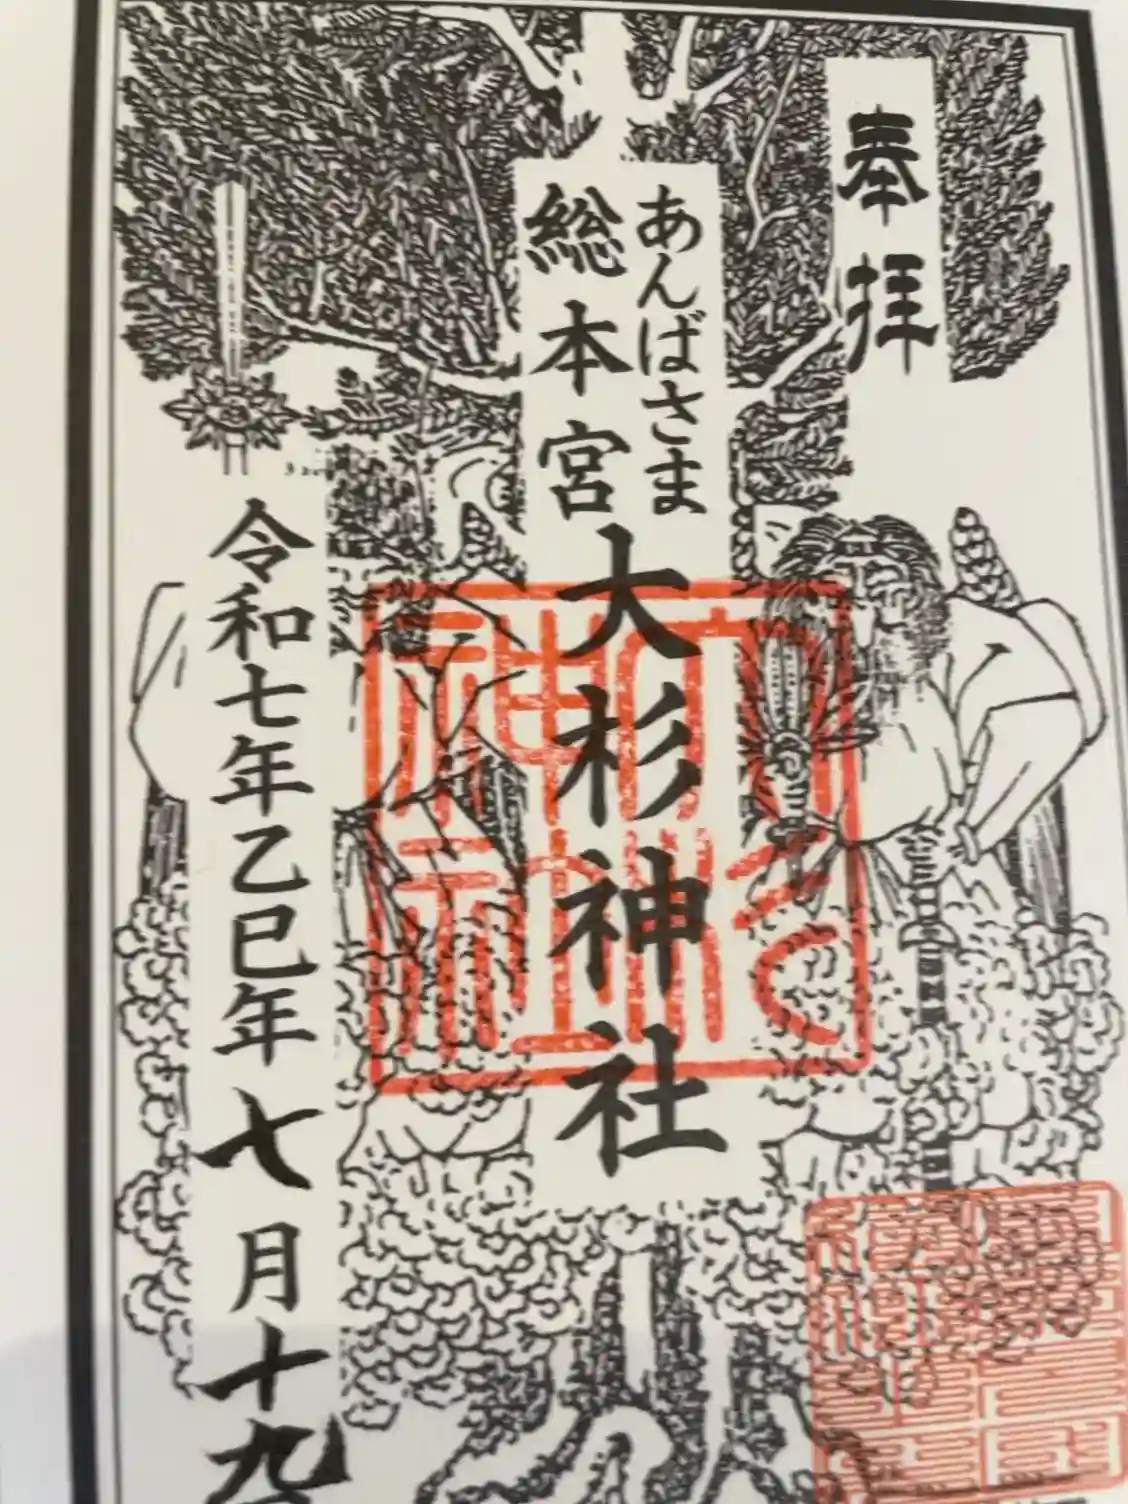 奉拝
あんばさま
総本宮
大杉神社
令和七年乙巳年七月十九